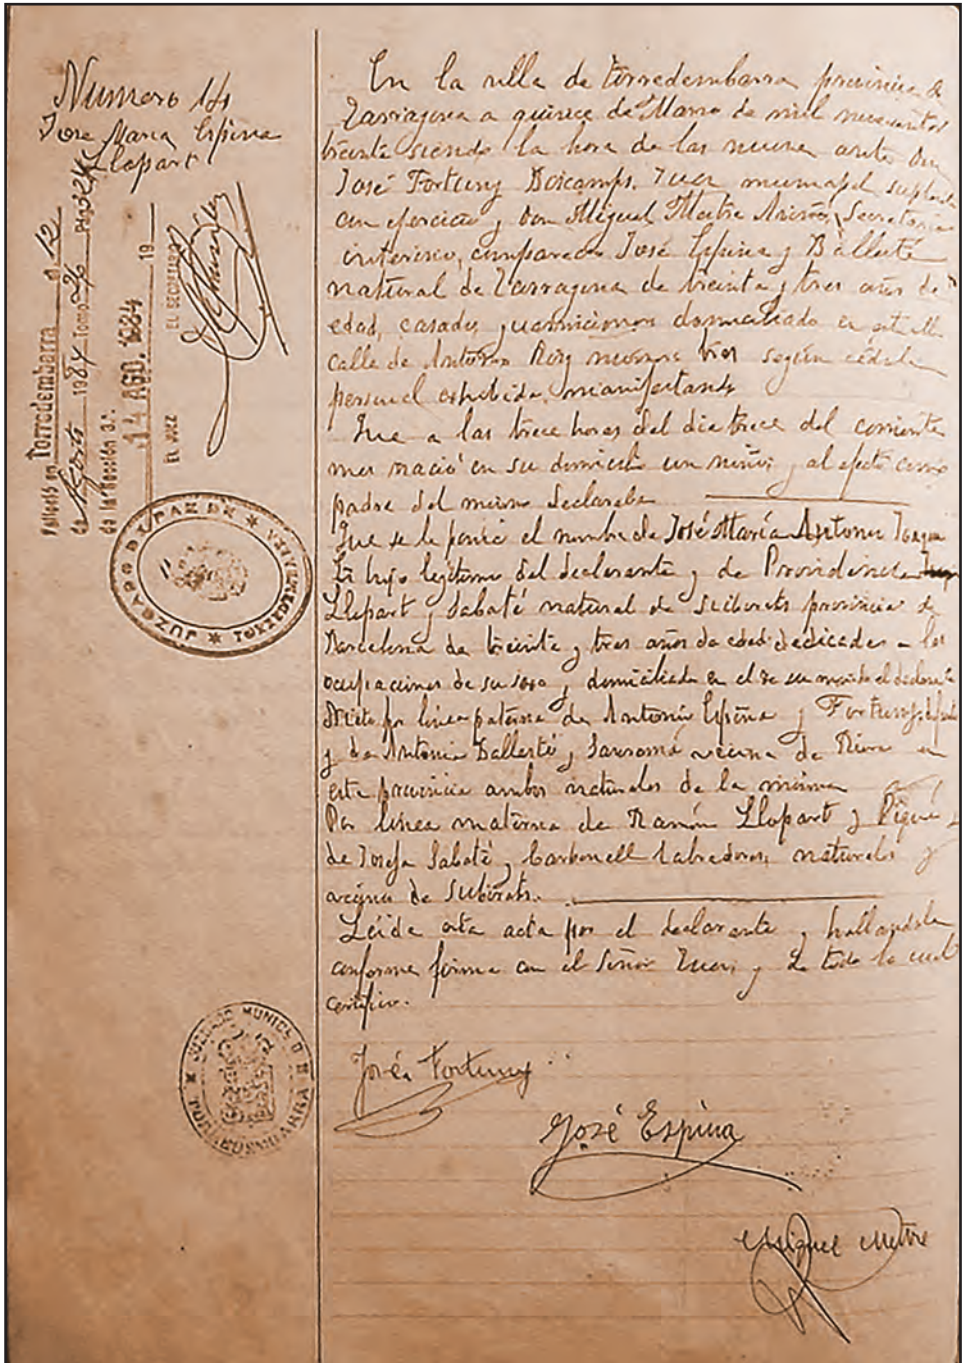 Numero 14
Jose Maria Espina
Llopart
Falleció en Torredembarra el 12
de Agosto 1984 Tomo 26 Pág 324
de la Sección 3.ª
14 AGO. 1984 19
EL JUEZ EL SECRETARIO
JUZGADO DE PAZ DE
JUZGADO MUNICIPAL TORREDEMBARRA
En la villa de Torredembarra provincia de
Tarragona a quince de Marzo de mil novecientos
treinta siendo la hora de las nueve ante Don
José Fortuny Boscamps, Juez municipal suplente
en ejercicio y Don Miguel Mestre Secretario
interino, comparece José Espina y Ballesté
natural de Tarragona de treinta y tres años de
edad, casado, domiciliado en esta
calle de Antonio Roig numero tres según cédula
personal exhibida, manifestando
Que a las trece horas del dia trece del corriente
mes nació en su domicilio un niño y al efecto como
padre del mismo declaraba
Que se le ponia el nombre de José María Antonio
Es hijo legitimo del declarante y de Providencia
Llopart y Sabaté natural de Subirats provincia de
Barcelona de treinta y tres años de edad dedicada a las
ocupaciones de su sexo y domiciliada en el de su marido el declarante
Nieto por linea paterna de Antonio Espina y Fortuny,
y de Antonia Ballesté y Sanromá vecina de Riera en
esta provincia ambos naturales de la misma
Por linea materna de Ramón Llopart y Piqué y
de Josefa Sabaté y Carbonell labradores, naturales y
vecinos de Subirats.
Leida esta acta por el declarante y hallandola
conforme firma con el Señor Juez, y de todo lo cual
certifico.
José Fortuny
José Espina
Miguel Mestre